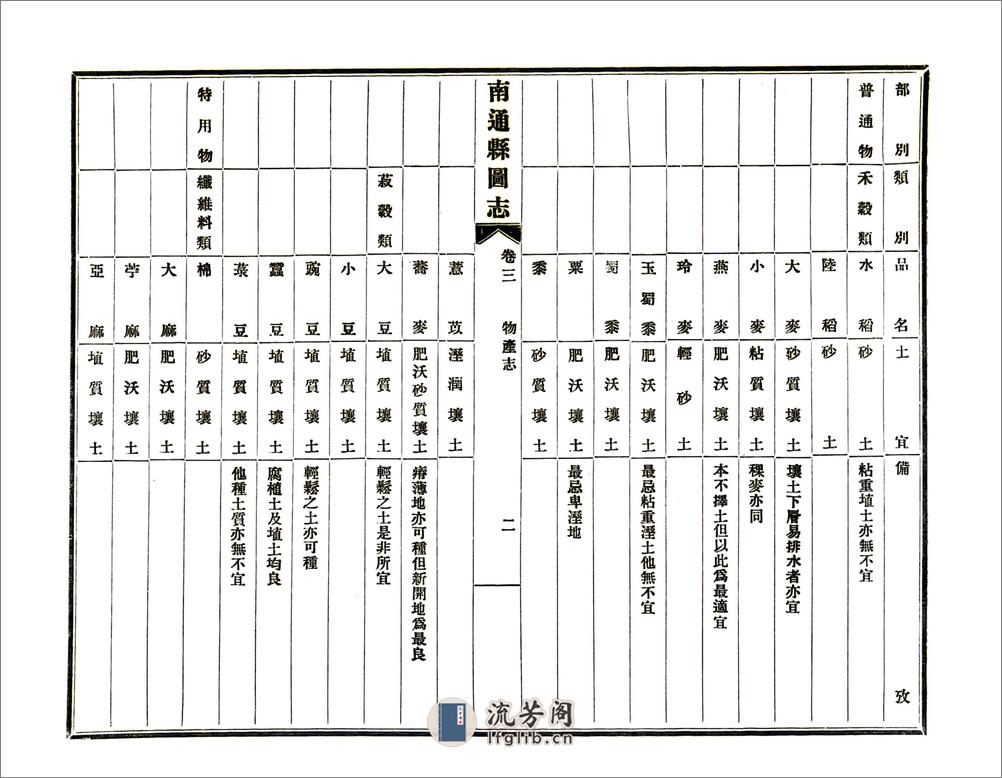 部別 類別 品名 土宜 備攷
普通物 禾穀類 水稻 砂土 粘重埴土亦無不宜
陸稻 砂土
大麥 砂質壤土 壤土下層易排水者亦宜
小麥 粘質壤土 稞麥亦同
燕麥 肥沃壤土 本不擇土但以此爲最適宜
玲麥 輕砂土
玉蜀黍 肥沃壤土 最忌粘重溼土他無不宜
蜀黍 肥沃壤土
粟 肥沃壤土 最忌卑溼地
黍 砂質壤土
南通縣圖志 卷三 物產志 二
薏苡 溼潤壤土
蕎麥 肥沃砂質壤土 瘠薄地亦可種但新開地爲最良
菽穀類 大豆 埴質壤土 輕鬆之土是非所宜
小豆 埴質壤土
豌豆 埴質壤土 輕鬆之土亦可種
蠶豆 埴質壤土 腐植土及埴土均良
菉豆 埴質壤土 他種土質亦無不宜
特用物 纖維料類 棉 砂質壤土
大麻 肥沃壤土
苧麻 肥沃壤土
亞麻 埴質壤土
流芳阁
lfglib.cn